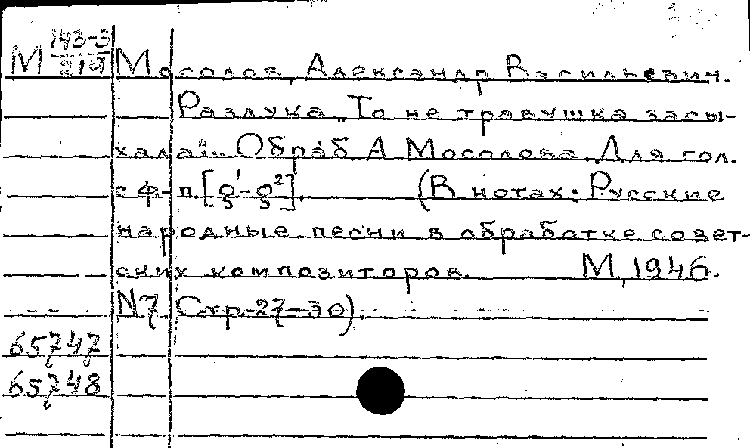 М 143-3 Мосолов, Александр Васильевич.
Разлука „То не травушка засы-
хала“. Обраб А Мосолова. Для гол.
с ф-п. [g¹-g²]. (В нотах: Русские
народные песни в обработке совет-
ских композиторов. М, 1946.
N7 Стр.-27-30).
65747
65748